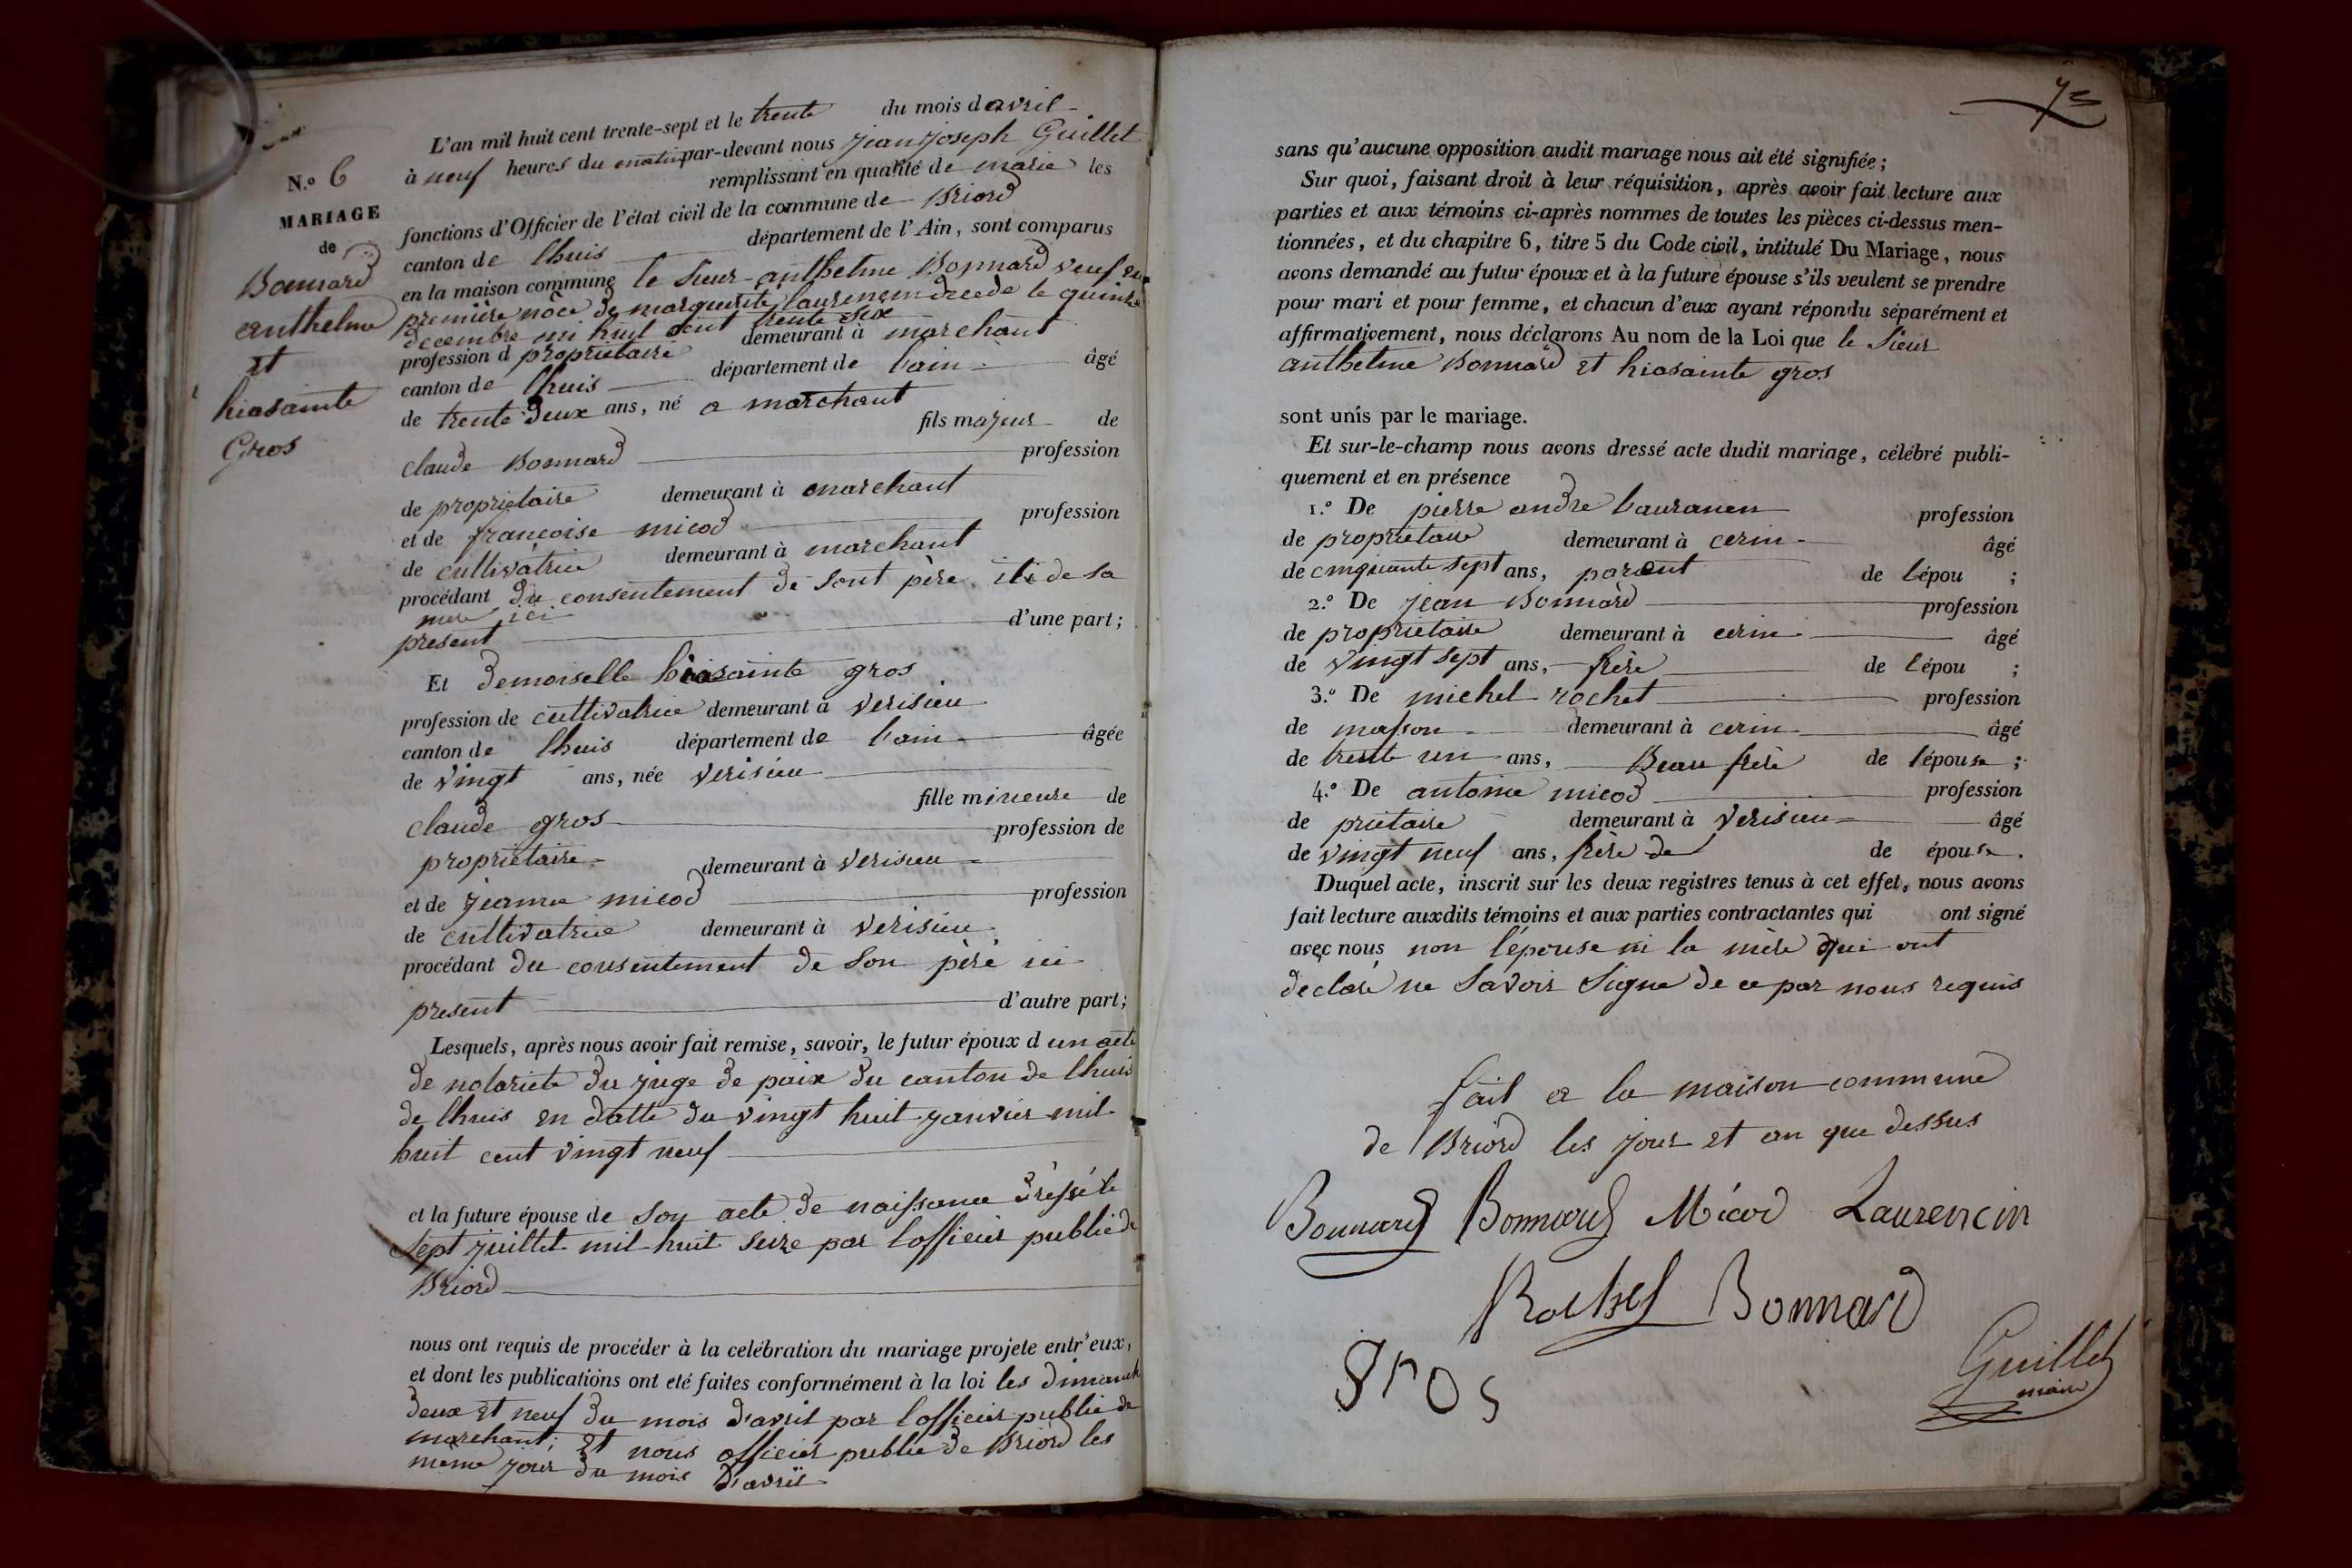 N.o 6
MARIAGE
de
Bonnard
anthelme
et
hiasainte
Gros
L'an mil huit cent trente-sept et le trente du mois d avril
à neuf heures du matin par-devant nous jean joseph Guillet
remplissant en qualité de marie les
fonctions d'Officier de l'état civil de la commune de Briord
canton de lhuis département de l'Ain, sont comparus
en la maison commune le sieur anthelme Bonnard veuf en
première nôce de marguerite laurencin decede le quinze
decembre mi huit cent trente six
profession d proprietaire demeurant à marchant
canton de lhuis département de l'ain âgé
de trente deux ans, né a marchant
fils majeur de
claude Bonnard profession
de proprietaire demeurant à marchant
et de françoise micod profession
de cultivatrice demeurant à marchant
procédant du consentement de sont père et de sa
mere ici
present d'une part;
Et demoiselle hiasainte gros
profession de cultivatrice demeurant à verisieu
canton de lhuis département de l'ain âgée
de vingt ans, née verisieu
fille mineure de
claude gros profession de
proprietaire demeurant à verisieu
et de jeanne micod profession
de cultivatrice demeurant à verisieu
procédant du consentement de son père ici
present d'autre part;
Lesquels, après nous avoir fait remise, savoir, le futur époux d un acte
de notoriete du juge de paix du canton de lhuis
de lhuis en datte du vingt huit janvier mil
huit cent vingt neuf
et la future épouse de son acte de naissance dressé le
sept juillet mil huit seize par l'officier public de
Briord
nous ont requis de procéder à la celébration du mariage projete entr'eux,
et dont les publications ont eté faites conformément à la loi les dimanch
deux et neuf du mois d'avril par l'officier public de
marchant; et nous officier public de Briord les
même jour du mois d'avril
72
sans qu'aucune opposition audit mariage nous ait été signifiée;
Sur quoi, faisant droit à leur réquisition, après avoir fait lecture aux
parties et aux témoins ci-après nommes de toutes les pièces ci-dessus men-
tionnées, et du chapitre 6, titre 5 du Code civil, intitulé Du Mariage, nous
avons demandé au futur époux et à la future épouse s'ils veulent se prendre
pour mari et pour femme, et chacun d'eux ayant répondu séparément et
affirmativement, nous déclarons Au nom de la Loi que le sieur
anthelme Bonnard et hiasainte gros
sont unis par le mariage.
Et sur-le-champ nous avons dressé acte dudit mariage, célébré publi-
quement et en présence
1.o De pierre andre profession
de proprietaire demeurant à cerin âgé
de cinquante sept ans, parent de l'épou ;
2.o De jean Bonnard profession
de proprietaire demeurant à cerin âgé
de vingt sept ans, frère de l'épou ;
3.o De michel rochet profession
de masson demeurant à cerin âgé
de trente un ans, Beau frère de l'épouse ;
4.o De antoine micod profession
de prietaire demeurant à verisieu âgé
de vingt neuf ans, frère de de épouse.
Duquel acte, inscrit sur les deux registres tenus à cet effet, nous avons
fait lecture auxdits témoins et aux parties contractantes qui ont signé
avec nous non l'épouse ni la mère qui ont
declaré ne savoir signe de ce par nous requis
fait a la maison commune
de Briord les jour et an que dessus
Bonnard Bonnard Micod Laurencin
Rochet Bonnard
gros
Guillet
maire